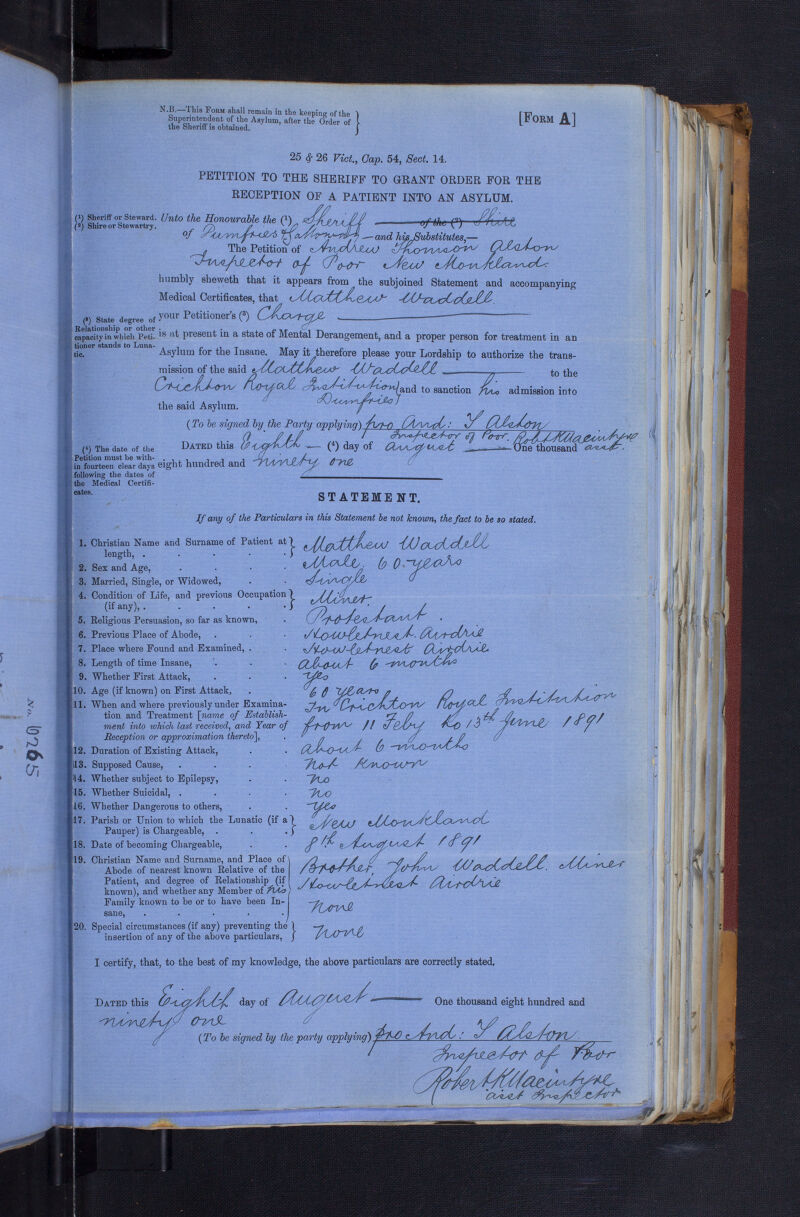 N.B.—This Form shall remain in the keeping of the
Superintendent of the Asylum, after the Order of
the Sheriff is obtained.
[Form A]
25 & 26 Vict., Cap. 54, Sect. 14.
PETITION TO THE SHERIFF TO GRANT ORDER FOR THE
RECEPTION OF A PATIENT INTO AN ASYLUM.
(1) Sheriff or Steward.
(2) Shire or Stewartry.
Unto the Honourable the (1) Sheriff of the (2) Shire
of Dumfries & Galloway — and his Substitutes,—
The Petition of Andrew Thomson Alston
Inspector of Poor New Monkland
humbly sheweth that it appears from the subjoined Statement and accompanying
Medical Certificates, that Matthew Waddell
(3) State degree of
Relationship or other
capacity in which Peti-
tioner stands to Luna-
tic.
your Petitioner's (3) Charge
is at present in a state of Mental Derangement, and a proper person for treatment in an
Asylum for the Insane. May it therefore please your Lordship to authorize the trans-
mission of the said Matthew Waddell to the
Crichton Royal Institution and to sanction his admission into
Dumfries
the said Asylum.
(To be signed by the Party applying) pro And: T Alston
Inspector of Poor. Robt K Macintyre
asst.
(4) The date of the
Petition must be with-
in fourteen clear days
following the dates of
the Medical Certifi-
cates.
Dated this Eighth — (4) day of August One thousand
eight hundred and ninety one
STATEMENT.
If any of the Particulars in this Statement be not known, the fact to be so stated.
1. Christian Name and Surname of Patient at length, . Matthew Waddell
2. Sex and Age, Male, 60 years
3. Married, Single, or Widowed, Single
4. Condition of Life, and previous Occupation (if any), . Miner.
5. Religious Persuasion, so far as known, Protestant.
6. Previous Place of Abode, . Howletnest. Airdrie
7. Place where Found and Examined, . Howletnest Airdrie
8. Length of time Insane, About 6 months
9. Whether First Attack, Yes
10. Age (if known) on First Attack, 60 years
11. When and where previously under Examina-
tion and Treatment [name of Establish-
ment into which last received, and Year of
Reception or approximation thereto],
In Crichton Royal Institution
from 11 Feby to 13th June 1891
12. Duration of Existing Attack, About 6 months
13. Supposed Cause, Not known
14. Whether subject to Epilepsy, No
15. Whether Suicidal, . No
16. Whether Dangerous to others, Yes
17. Parish or Union to which the Lunatic (if a
Pauper) is Chargeable, . New Monkland
18. Date of becoming Chargeable, 8th August 1891
19. Christian Name and Surname, and Place of
Abode of nearest known Relative of the
Patient, and degree of Relationship (if
known), and whether any Member of his
Family known to be or to have been In-
sane,
Brother, John Waddell. Miner
Howletnest Airdrie
None
20. Special circumstances (if any) preventing the
insertion of any of the above particulars, None
I certify, that, to the best of my knowledge, the above particulars are correctly stated.
Dated this Eighth day of August One thousand eight hundred and
ninety one
(To be signed by the party applying) pro And: T Alston
Inspector of Poor
Robert K Macintyre
asst Inspector
No. 6265